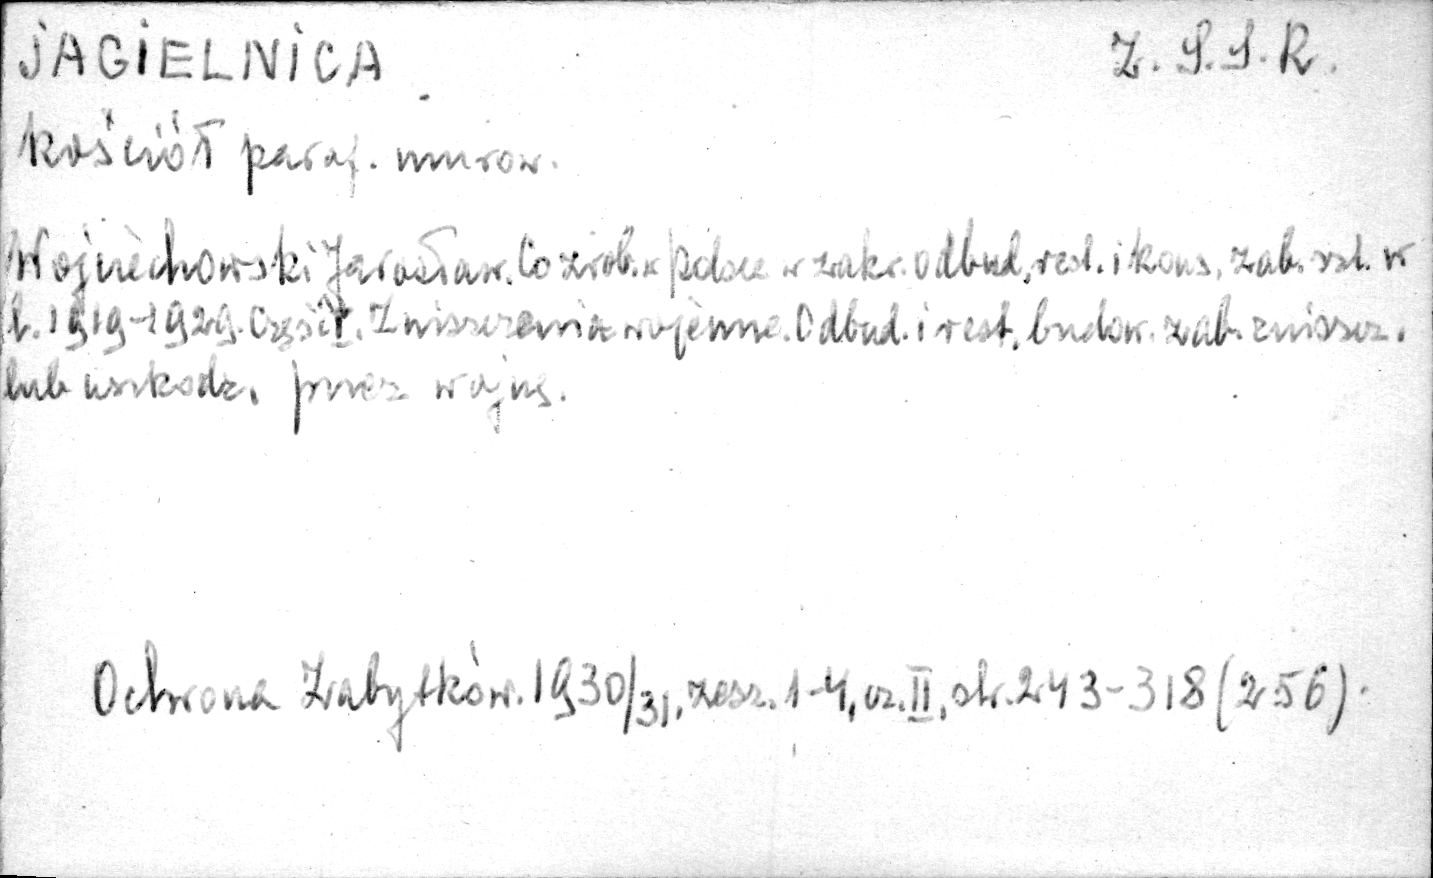 JAGIELNICA
Z.S.S.R.
Kościół paraf. murow.
Wojciechowski Jarosław. Co zrob. w Polsce w zakr. odbud., rest. i kons. zab. szt. w
l. 1919-1929. Część I. Zniszczenia wojenne. Odbud. i rest. budow. zab. zniszcz.
lub uszkodz. przez wojnę.
Ochrona Zabytków. 1930/31, zesz. 1-4, cz. II, str. 243-318 (256).